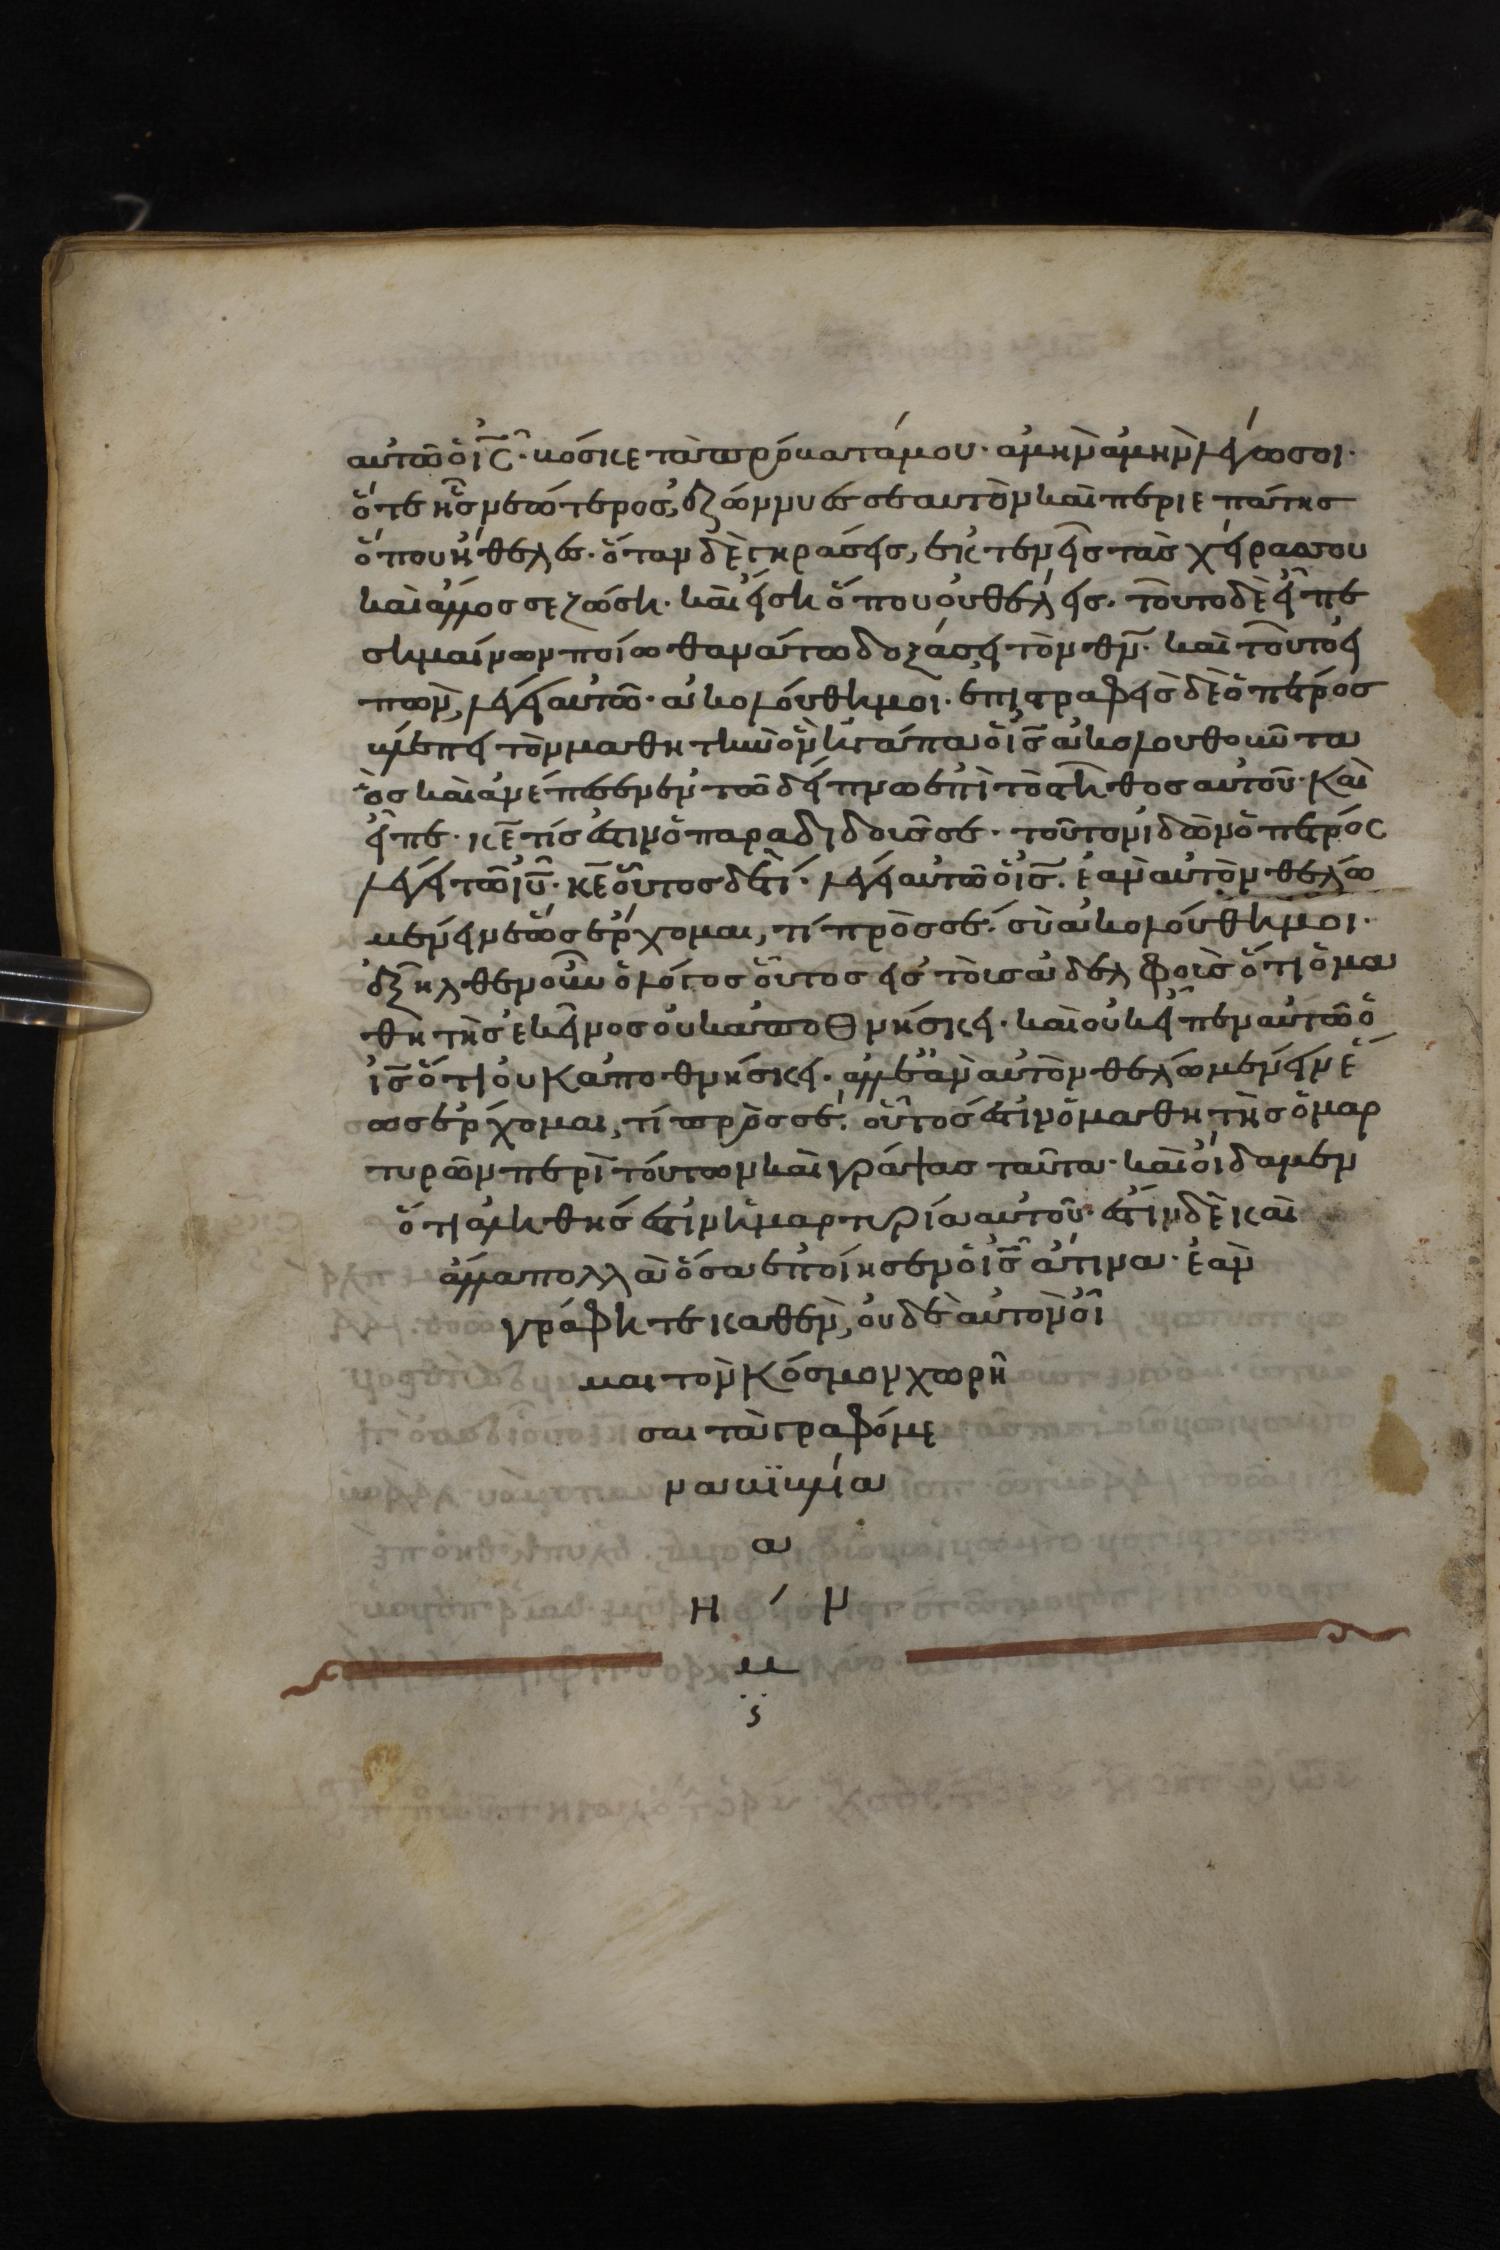 αυτῶ ὁ ι̅ς̅· βόσκε τὰ πρόβατά μου· ἀμὴν ἀμὴν λέγω σοι·
ὅτε ἦς νεώτερος, ἐζώννυες σεαυτὸν καὶ περιεπάτης
ὅπου ἤθελες· ὅταν δὲ γηράσεις, ἐκτενεῖς τὰς χείρας σου
καὶ ἄλλος σε ζώση· καὶ είση ὅπου οὐ θέλεις· τοῦτο δὲ εἶπε
σημαίνων ποίω θανάτω δοξάσει τὸν θ̅ν̅· καὶ τοῦτο εἰ
πὼν, λέγει αυτῶ· ἀκολούθη μοι· ἐπιστραφεὶς δὲ ὁ πέτρος
βλέπει τὸν μαθητὴν ὃν ἠγάπα ὁ ι̅ς̅ ἀκολουθοῦντα
ὃς καὶ ἀνέπεσεν ἐν τῶ δείπνω ἐπὶ τὸ στῆθος αυτοῦ· καὶ
εἶπε· κ̅ε̅ τίς ἐστιν ὁ παραδιδούς σε· τοῦτον ἰδὼν ὁ πέτρος
λέγει τῶ ι̅υ̅· κ̅ε̅ οὗτος δὲ τί· λέγει αυτῶ ὁ ι̅ς̅· ἐὰν αὐτὸν θέλω
μένειν ἕως ἔρχομαι, τί πρὸς σέ· σὺ ἀκολούθη μοι·
ἐξῆλθεν οὖν ὁ λόγος οὗτος εἰς τοὺς ἀδελφοὺς ὅτι ὁ μα
θητὴς ἐκεῖνος οὐκ ἀποθνήσκει· καὶ οὐκ εἶπεν αὐτῶ ὁ
ι̅ς̅ ὅτι οὐκ ἀποθνήσκει· ἀλλ ἐὰν αὐτὸν θέλω μένειν ἕ
ως ἔρχομαι, τί πρὸς σέ· οὗτός ἐστιν ὁ μαθητὴς ὁ μαρ
τυρῶν περὶ τούτων καὶ γράψας ταῦτα· καὶ οἴδαμεν
ὅτι ἀληθής ἐστιν ἡ μαρτυρία αυτοῦ· ἐστὶν δὲ καὶ
ἄλλα πολλὰ ὅσα ἐποίησεν ὁ ι̅ς̅ ἅτινα· ἐὰν
γράφητε καθὲν, οὐδὲ αὐτὸν οἶ
μαι τὸν κόσμον χωρῆ
σαι τὰ γραφόμε
να βϊβλία
α
η ν
μ